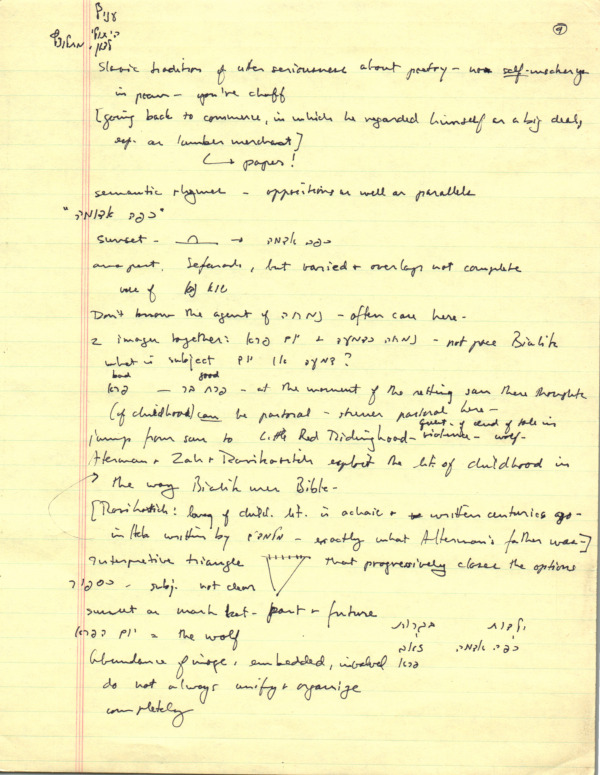 9
Slavic tradition of utter seriousness about poetry - no self-mockery
in poem - you're chaff
[going back to commerce, in which he regarded himself as a big deal,
esp. as lumber merchant]
→ paper!
semantic rhymes - oppositions as well as parallels
"כפה אדומה"
sunset - → כפה אדמה
anapest. Sefarads, but varied + overlaps not complete
use of
Don't know the agent of נמחה - often case here -
2 images together: נמחה כדמעה + יום פרא - not pace Bialik
what is subject יום או דמעה?
bad good
פרא - - at the moment of the setting sun there thoughts
(of childhood) can be pastoral - pastoral here -
jumps from sun to Little Red Ridinghood - violence - wolf -
quest. of end of tale is
Alterman + Zach + Ravikovitch exploit the lit. of childhood in
the way Bialik uses Bible -
[Ravikovitch: lang of child. lit. is archaic + written centuries ago -
in Heb written by - exactly what Alterman's father was -]
interpretive triangle that progressively closes the options
subj. not clear
sunset as mark bet - past + future
יום הפרא = the wolf
ילדות בגרות
כפה אדמה זאב
פרא
Abundance of image, embedded, involved
do not always unify + organize
completely